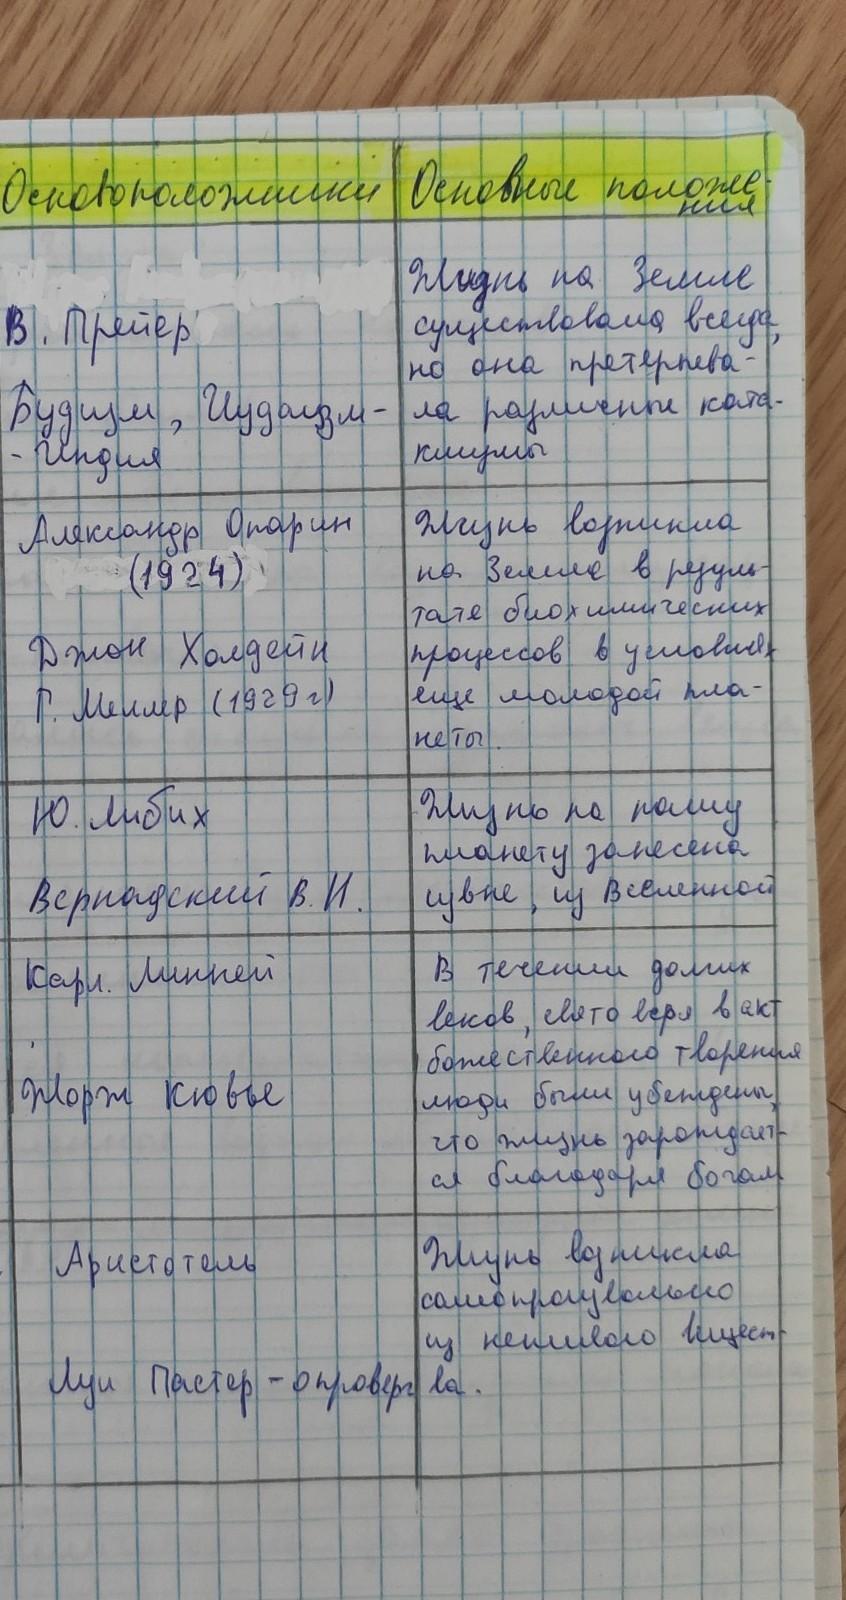 Основоположники
Основные положе-
ния
В. Прейер
Будизм, Иудаизм-
- Индия
Жизнь на Земле
существовала всегда,
но она претерпева-
ла различные ката-
клизмы
Александр Опарин
(1924)
Джон Холдейн
Г. Меллер (1929г)
Жизнь возникла
на Земле в резуль-
тате биохимических
процессов в условиях
еще молодой пла-
неты.
Ю. Либих
Вернадский В.И.
Жизнь на нашу
планету занесена
извне, из Вселенной
Карл. Линней
Жорж Кювье
В течении долгих
веков, свято веря в акт
божественного творения
люди были убеждены,
что жизнь зарождает-
ся благодаря богам
Аристотель
Луи Пастер - опроверг
Жизнь возникла
самопроизвольно
из неживого вещест-
ва.